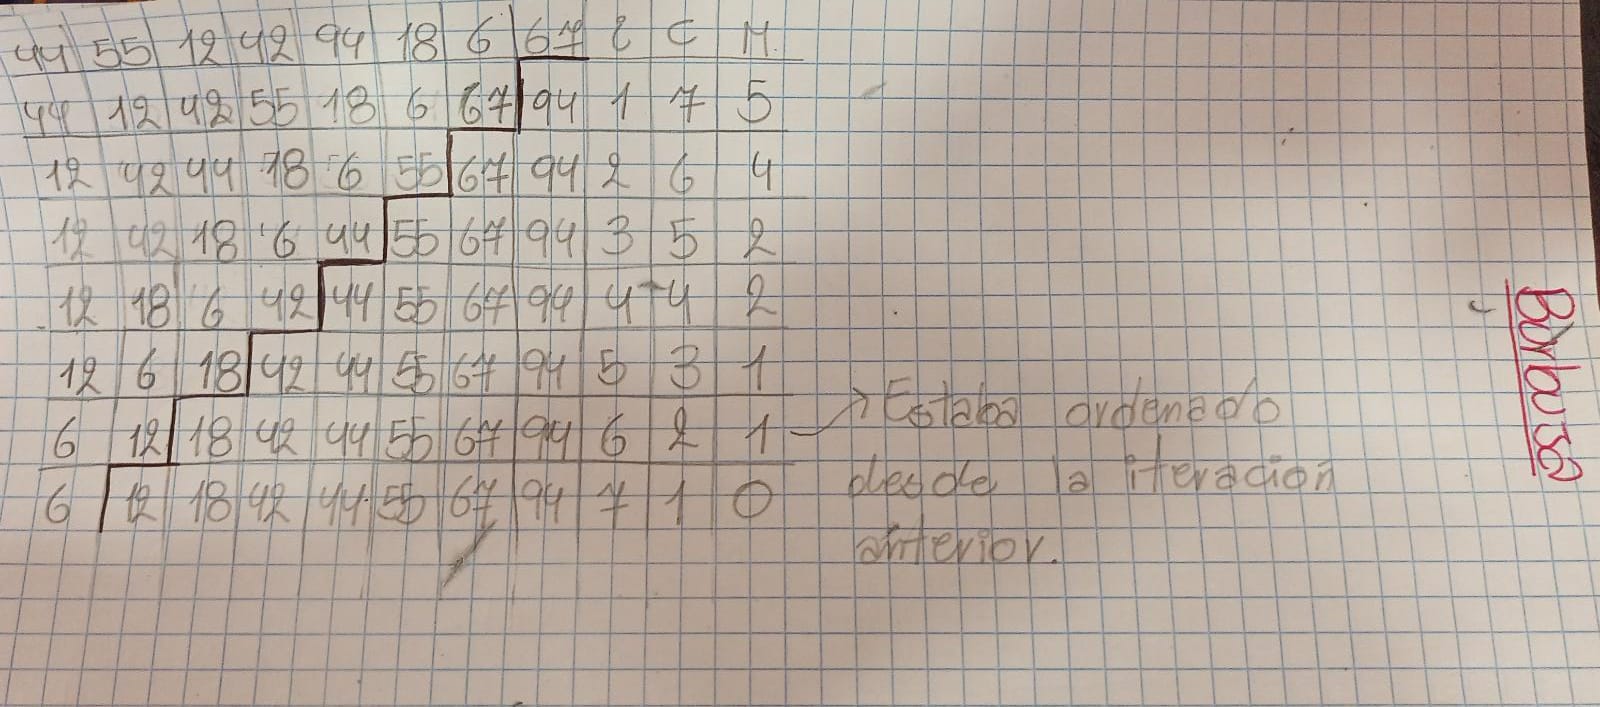 44 55 12 42 94 18 6 67 i C M
44 12 42 55 18 6 67 94 1 7 5
12 42 44 18 6 55 67 94 2 6 4
12 42 18 6 44 55 67 94 3 5 2
12 18 6 42 44 55 67 94 4 4 2
12 6 18 42 44 55 67 94 5 3 1
6 12 18 42 44 55 67 94 6 2 1
6 12 18 42 44 55 67 94 7 1 0
Estaba ordenado
desde la iteración
anterior.
Burbuja